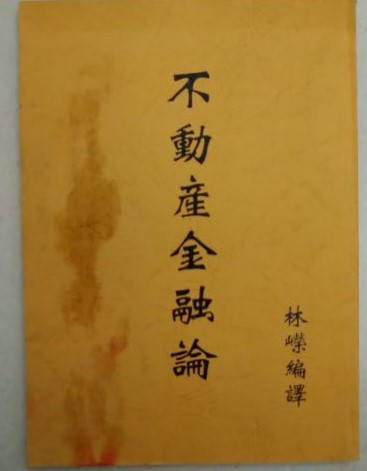 不動産金融論
林嶸編譯